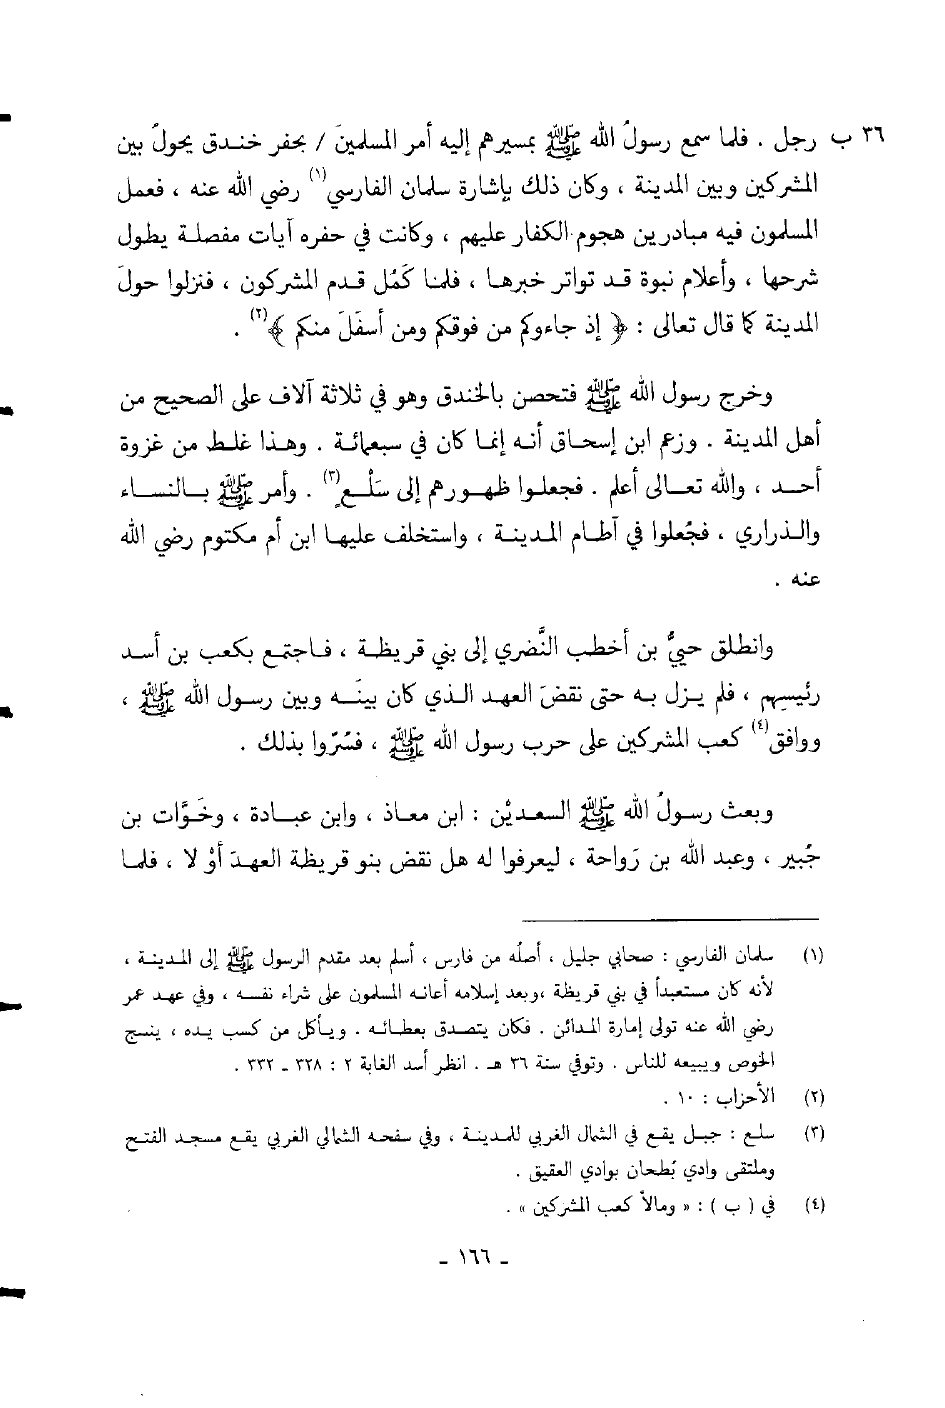 ٣٦ ب رجل . فلما سمع رسولُ الله ﷺ بمسيرهم إليه أمر المسلمينَ / بحفر خندق يحولُ بين
المشركين وبين المدينة ، وكان ذلك بإشارة سلمان الفارسي(١) رضي الله عنه ، فعمل
المسلمون فيه مبادرين هجوم الكفار عليهم ، وكانت في حفره آيات مفصلة يطول
شرحها ، وأعلام نبوة قد تواتر خبرها ، فلما كَمُل قدم المشركون ، فنزلوا حولَ
المدينة كما قال تعالى : ﴿ إذ جاءوكم من فوقكم ومن أسفَلَ منكم ﴾(٢) .
وخرج رسول الله ﷺ فتحصن بالخندق وهو في ثلاثة آلاف على الصحيح من
أهل المدينة . وزعم ابن إسحاق أنه إنما كان في سبعمائة . وهذا غلط من غزوة
أحد ، والله تعالى أعلم . فجعلوا ظهورهم إلى سَلْعٍ(٣) . وأمر ﷺ بالنساء
والذراري ، فجُعلوا في آطام المدينة ، واستخلف عليها ابن أم مكتوم رضي الله
عنه .
وانطلق حييُّ بن أخطب النَّضري إلى بني قريظة ، فاجتمع بكعب بن أسد
رئيسهم ، فلم يزل به حتى نقضَ العهد الذي كان بينَه وبين رسول الله ﷺ ،
ووافق(٤) كعب المشركين على حرب رسول الله ﷺ ، فسُرّوا بذلك .
وبعث رسولُ الله ﷺ السعديْن : ابن معاذ ، وابن عبادة ، وخَوَّات بن
جُبير ، وعبد الله بن رَواحة ، ليعرفوا له هل نقض بنو قريظة العهدَ أوْ لا ، فلما
(١) سلمان الفارسي : صحابي جليل ، أصلُه من فارس ، أسلم بعد مقدم الرسول ﷺ إلى المدينة ،
لأنه كان مستعبداً في بني قريظة ،وبعد إسلامه أعانه المسلمون على شراء نفسه ، وفي عهد عمر
رضي الله عنه تولى إمارة المدائن . فكان يتصدق بعطائه . ويأكل من كسب يده ، ينسج
الخوص ويبيعه للناس . وتوفي سنة ٣٦ هـ . انظر أسد الغابة ٢ : ٣٢٨ ـ ٣٣٢ .
(٢) الأحزاب : ١٠ .
(٣) سلع : جبل يقع في الشمال الغربي للمدينة ، وفي سفحه الشمالي الغربي يقع مسجد الفتح
وملتقى وادي بُطحان بوادي العقيق .
(٤) في ( ب ) : « ومالأ كعب المشركين » .
ـ ١٦٦ ـ